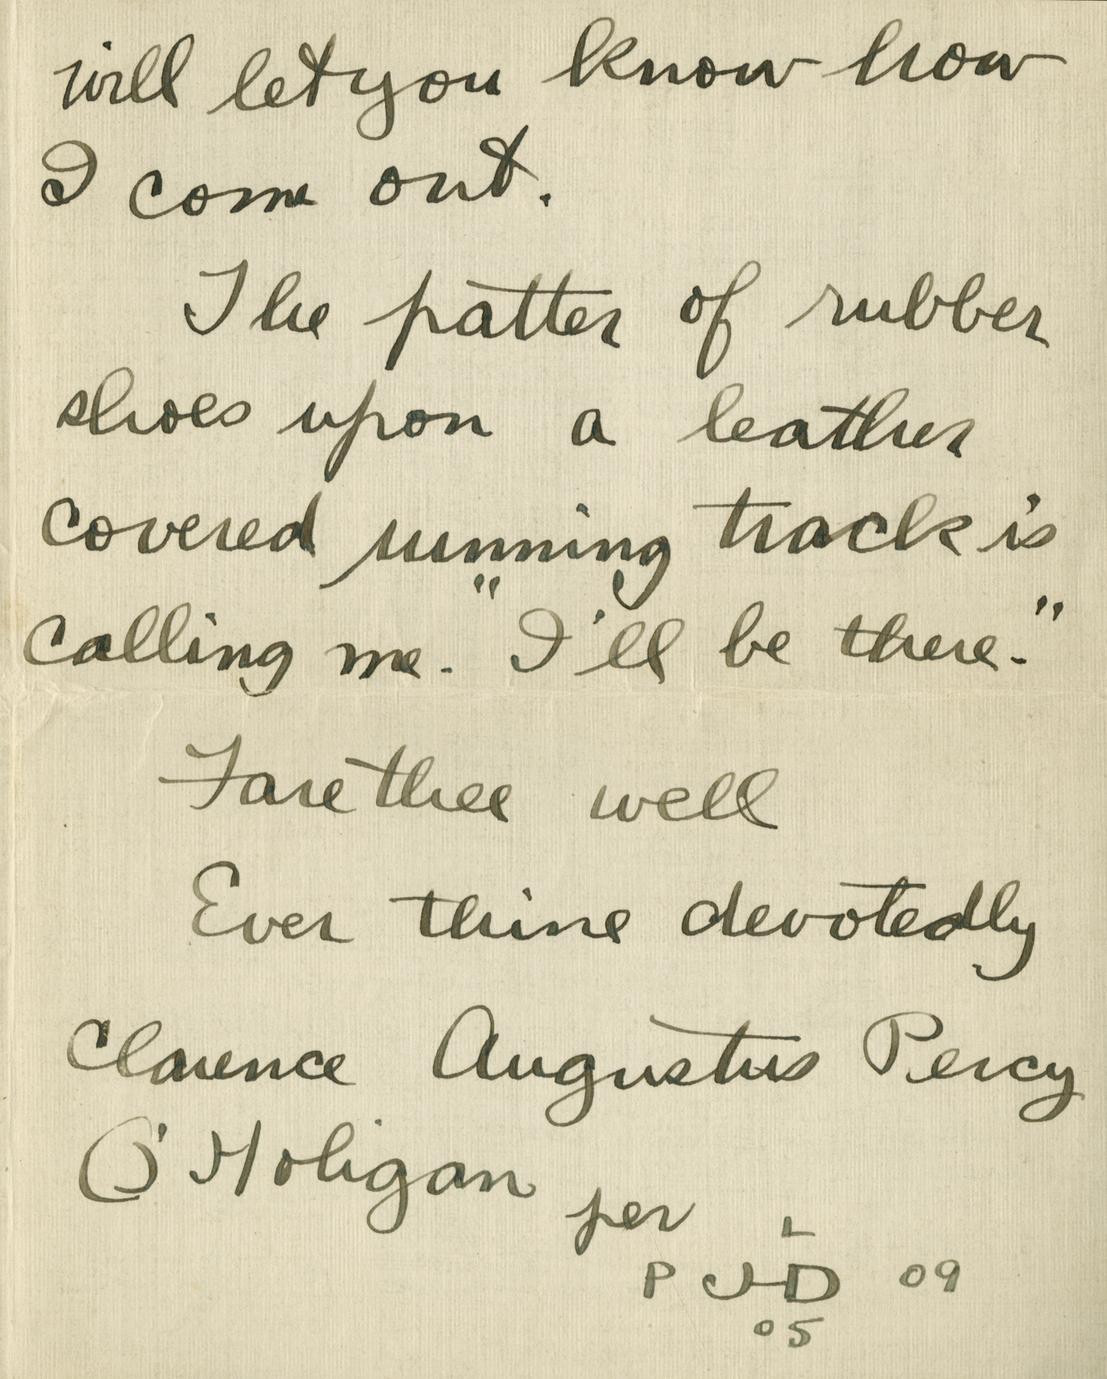 will let you know how
I come out.
The patter of rubber
shoes upon a leather
covered running track is
calling me. "I'll be there."
Fare thee well
Ever thine devotedly
Clarence Augustus Percy
O'Holigan per
L
P JD 09
05